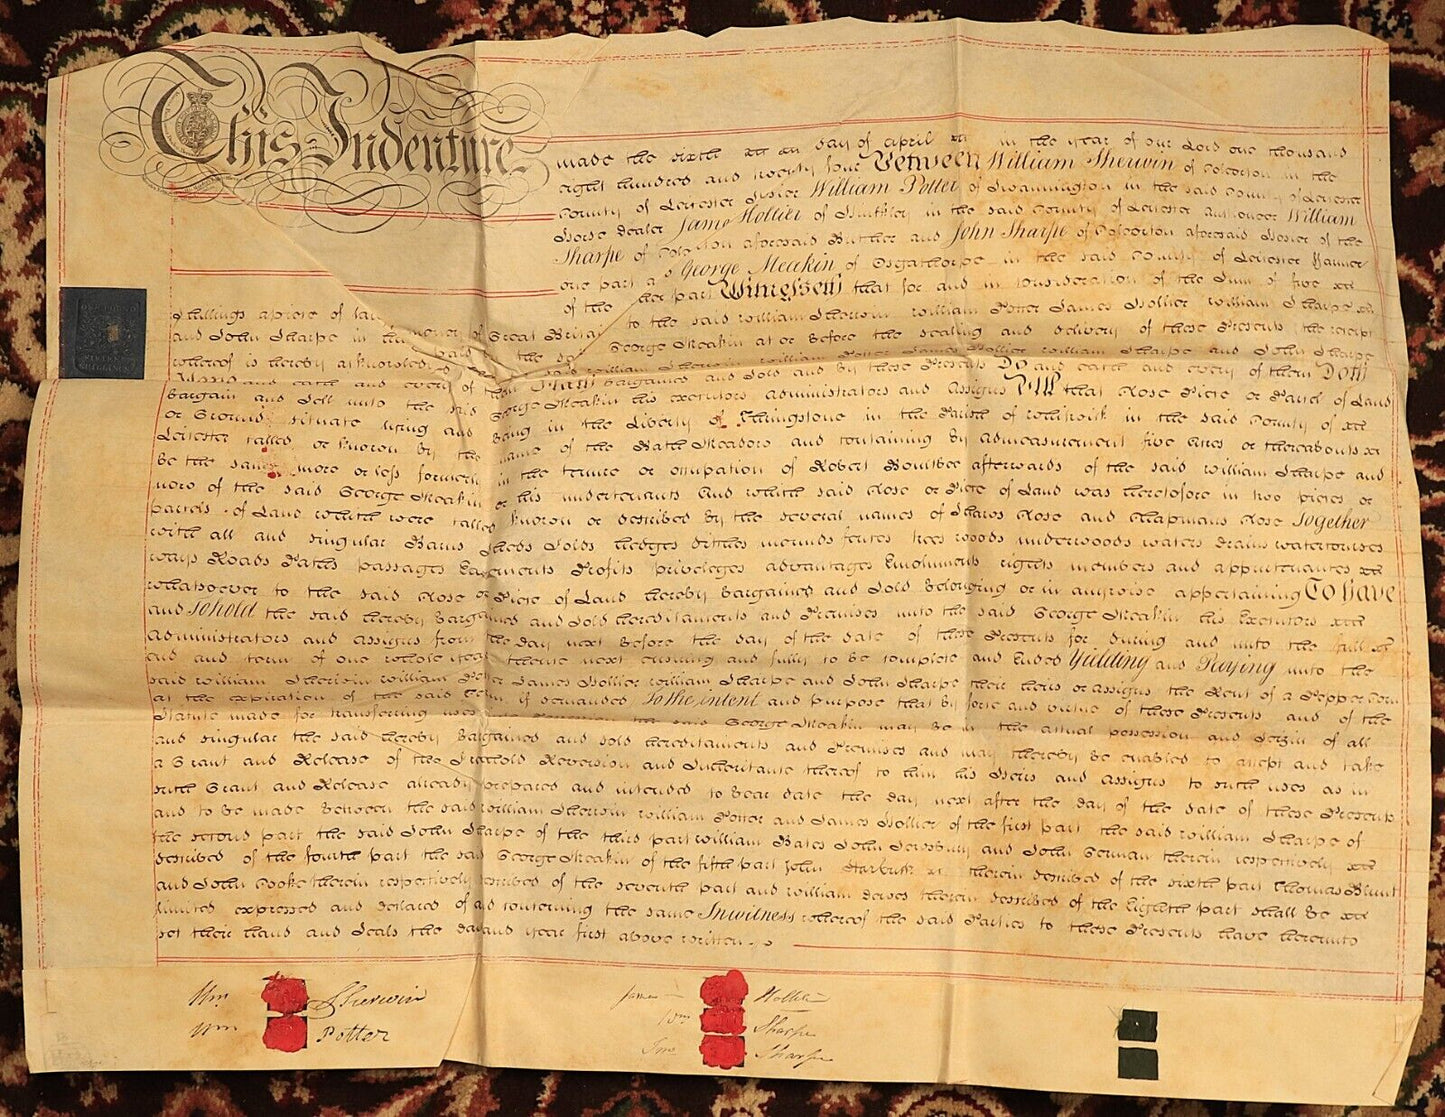 This Indenture
made the sixth day of April in the year of our Lord one thousand
eight hundred and twenty four Between William Sherwin of Coleorton in the
County of Leicester William Potter of Swannington in the said County of Leicester
Horse dealer James Hollier of in the said County of Leicester Auctioneer William
Sharpe of aforesaid Butcher and John Sharpe of Coleorton aforesaid of the
one part a George Meakin of Osgathorpe in the said County of Leicester
of the other part Witnesseth that for and in consideration of the Sum of five
shillings apiece of to the said William Sherwin William Potter James Hollier William Sharpe
and John Sharpe in hand paid by the said George Meakin at or before the sealing and delivery of these Presents the receipt
whereof is hereby acknowledged said William Sherwin William Potter James Hollier William Sharpe and John Sharpe
and each and every of them Hath Bargained and Sold and by these Presents Do and each and every of them Doth
Bargain and Sell unto the said George Meakin his executors administrators and Assigns All that Close Piece or Parcel of Land
or Ground situate lying and Being in the Liberty of Thringstone in the Parish of Whitwick in the said County of
Leicester called or known by the name of the Bath Meadow and containing by admeasurement five Acres or thereabouts
be the same more or less formerly in the tenure or occupation of Robert Boultbee afterwards of the said William Sharpe and
now of the said George Meakin or his undertenants And which said Close or Piece of Land was heretofore in two pieces or
parcels of Land which were called known or described by the several names of Close and Chapmans Close Together
with all and singular Barns Sheds Folds hedges ditches mounds fences trees woods underwoods waters drains watercourses
ways Roads Paths passages Easements Profits privileges advantages Emoluments rights members and appurtenances
whatsoever to the said Close or Piece of Land hereby Bargained and Sold Belonging or in anywise appertaining To have
and To hold the said hereby Bargained and Sold hereditaments and Premises unto the said George Meakin his Executors
administrators and assigns from the day next before the day of the date of these Presents for during and unto the full
end and term of one whole year thence next ensuing and fully to be complete and Ended Yielding and Paying unto the
said William Sherwin William Potter James Hollier William Sharpe and John Sharpe their heirs or assigns the Rent of a Pepper Corn
at the expiration of the said Term if demanded To the intent and purpose that by force and virtue of these Presents and of the
Statute made for transferring uses the said George Meakin may be in the actual possession and Seizin of all
and singular the said hereby Bargained and sold hereditaments and Premises and may thereby be enabled to accept and take
a Grant and Release of the Freehold Reversion and Inheritance thereof to him his Heirs and assigns to such uses as in
such Grant and Release already prepared and intended to bear date the day next after the day of the date of these Presents
and to be made Between the said William Sherwin William Potter and James Hollier of the first part the said William Sharpe of
the second part the said John Sharpe of the third part William Bates John and John German therein respectively
described of the fourth part the said George Meakin of the fifth part John therein described of the sixth part Thomas
and John Cooke therein respectively described of the seventh part and William therein described of the Eighth part shall be
limited expressed and declared of and concerning the same In witness whereof the said Parties to these Presents have hereunto
set their hand and Seals the day and year first above written
Wm Sherwin
Wm Potter
James Hollier
Wm Sharpe
Jno Sharpe